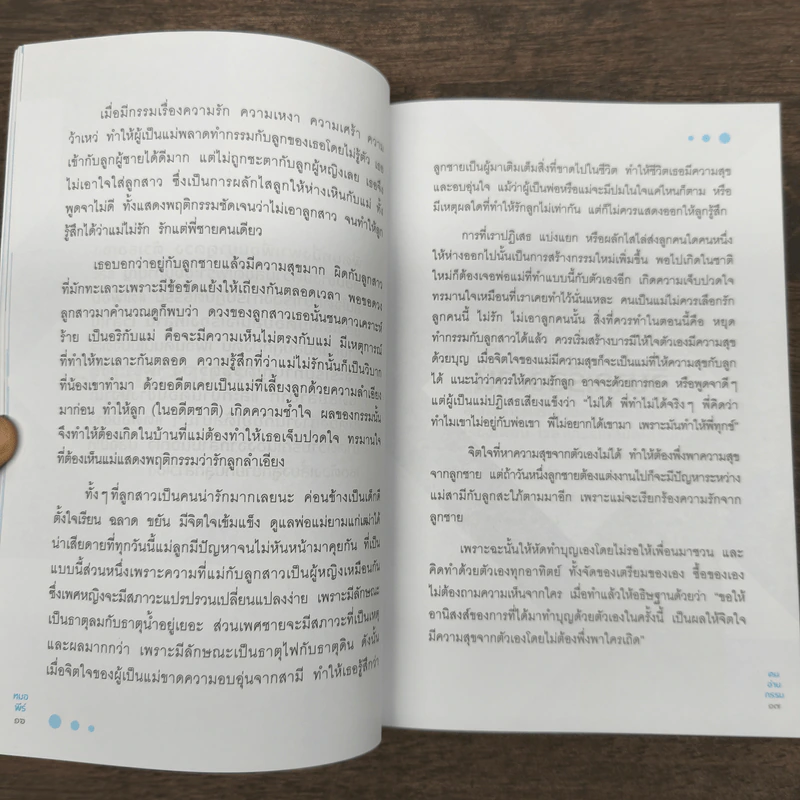 เมื่อมีกรรมเรื่องความรัก ความเหงา ความเศร้า ความ
ว้าเหว่ ทำให้ผู้เป็นแม่พลาดทำกรรมกับลูกของเธอโดยไม่รู้ตัว เธอ
เข้ากับลูกผู้ชายได้ดีมาก แต่ไม่ถูกชะตากับลูกผู้หญิงเลย เธอจึง
ไม่เอาใจใส่ลูกสาว ซึ่งเป็นการผลักไสลูกให้ห่างเหินกับแม่ ทั้ง
พูดจาไม่ดี ทั้งแสดงพฤติกรรมชัดเจนว่าไม่เอาลูกสาว จนทำให้ลูก
รู้สึกได้ว่าแม่ไม่รัก รักแต่พี่ชายคนเดียว
เธอบอกว่าอยู่กับลูกชายแล้วมีความสุขมาก ผิดกับลูกสาว
ที่มักทะเลาะเพราะมีข้อขัดแย้งให้เถียงกันตลอดเวลา พอขอดวง
ลูกสาวมาคำนวณดูก็พบว่า ดวงของลูกสาวเธอนั้นชนดาวเคราะห์
ร้าย เป็นอริกับแม่ คือจะมีความเห็นไม่ตรงกับแม่ มีเหตุการณ์
ที่ทำให้ทะเลาะกันตลอด ความรู้สึกที่ว่าแม่ไม่รักนั้นก็เป็นวิบาก
ที่น้องเขาทำมา ด้วยอดีตเคยเป็นแม่ที่เลี้ยงลูกด้วยความลำเอียง
มาก่อน ทำให้ลูก (ในอดีตชาติ) เกิดความช้ำใจ ผลของกรรมนั้น
จึงทำให้ต้องเกิดในบ้านที่แม่ต้องทำให้เธอเจ็บปวดใจ ทรมานใจ
ที่ต้องเห็นแม่แสดงพฤติกรรมว่ารักลูกลำเอียง
ทั้งๆ ที่ลูกสาวเป็นคนน่ารักมากเลยนะ ค่อนข้างเป็นเด็กดี
ตั้งใจเรียน ฉลาด ขยัน มีจิตใจเข้มแข็ง ดูแลพ่อแม่ยามแก่เฒ่าได้
น่าเสียดายที่ทุกวันนี้แม่ลูกมีปัญหาจนไม่หันหน้ามาคุยกัน ที่เป็น
แบบนี้ส่วนหนึ่งเพราะความที่แม่กับลูกสาวเป็นผู้หญิงเหมือนกัน
ซึ่งเพศหญิงจะมีสภาวะแปรปรวนเปลี่ยนแปลงง่าย เพราะมีลักษณะ
เป็นธาตุลมกับธาตุน้ำอยู่เยอะ ส่วนเพศชายจะมีสภาวะที่เป็นเหตุ
และผลมากกว่า เพราะมีลักษณะเป็นธาตุไฟกับธาตุดิน ดังนั้น
เมื่อจิตใจของผู้เป็นแม่ขาดความอบอุ่นจากสามี ทำให้เธอรู้สึกว่า
หมอ
พีร์
๑๖
ลูกชายเป็นผู้มาเติมเต็มสิ่งที่ขาดไปในชีวิต ทำให้ชีวิตเธอมีความสุข
และอบอุ่นใจ แม้ว่าผู้เป็นพ่อหรือแม่จะมีปมในใจแค่ไหนก็ตาม หรือ
มีเหตุผลใดที่ทำให้รักลูกไม่เท่ากัน แต่ก็ไม่ควรแสดงออกให้ลูกรู้สึก
การที่เราปฏิเสธ แบ่งแยก หรือผลักไสไล่ส่งลูกคนใดคนหนึ่ง
ให้ห่างออกไปนั้นเป็นการสร้างกรรมใหม่เพิ่มขึ้น พอไปเกิดในชาติ
ใหม่ก็ต้องเจอพ่อแม่ที่ทำแบบนี้กับตัวเองอีก เกิดความเจ็บปวดใจ
ทรมานใจเหมือนที่เราเคยทำไว้นั่นแหละ คนเป็นแม่ไม่ควรเลือกรัก
ลูกคนนี้ ไม่รัก ไม่เอาลูกคนนั้น สิ่งที่ควรทำในตอนนี้คือ หยุด
ทำกรรมกับลูกสาวได้แล้ว ควรเริ่มสร้างบารมีให้ใจตัวเองมีความสุข
ด้วยบุญ เมื่อจิตใจของแม่มีความสุขก็จะเป็นแม่ที่ให้ความสุขกับลูก
ได้ แนะนำว่าควรให้ความรักลูก อาจจะด้วยการกอด หรือพูดจาดีๆ
แต่ผู้เป็นแม่ปฏิเสธเสียงแข็งว่า “ไม่ได้ พี่ทำไม่ได้จริงๆ พี่คิดว่า
ทำไมเขาไม่อยู่กับพ่อเขา พี่ไม่อยากได้เขามา เพราะมันทำให้พี่ทุกข์”
จิตใจที่หาความสุขจากตัวเองไม่ได้ ทำให้ต้องพึ่งพาความสุข
จากลูกชาย แต่ถ้าวันหนึ่งลูกชายต้องแต่งงานไปก็จะมีปัญหาระหว่าง
แม่สามีกับลูกสะใภ้ตามมาอีก เพราะแม่จะเรียกร้องความรักจาก
ลูกชาย
เพราะฉะนั้นให้หัดทำบุญเองโดยไม่รอให้เพื่อนมาชวน และ
คิดทำด้วยตัวเองทุกอาทิตย์ ทั้งจัดของเตรียมของเอง ซื้อของเอง
ไม่ต้องถามความเห็นจากใคร เมื่อทำแล้วให้อธิษฐานด้วยว่า “ขอให้
อานิสงส์ของการที่ได้มาทำบุญด้วยตัวเองในครั้งนี้ เป็นผลให้จิตใจ
มีความสุขจากตัวเองโดยไม่ต้องพึ่งพาใครเถิด”
คน
อ่าน
กรรม
๑๗